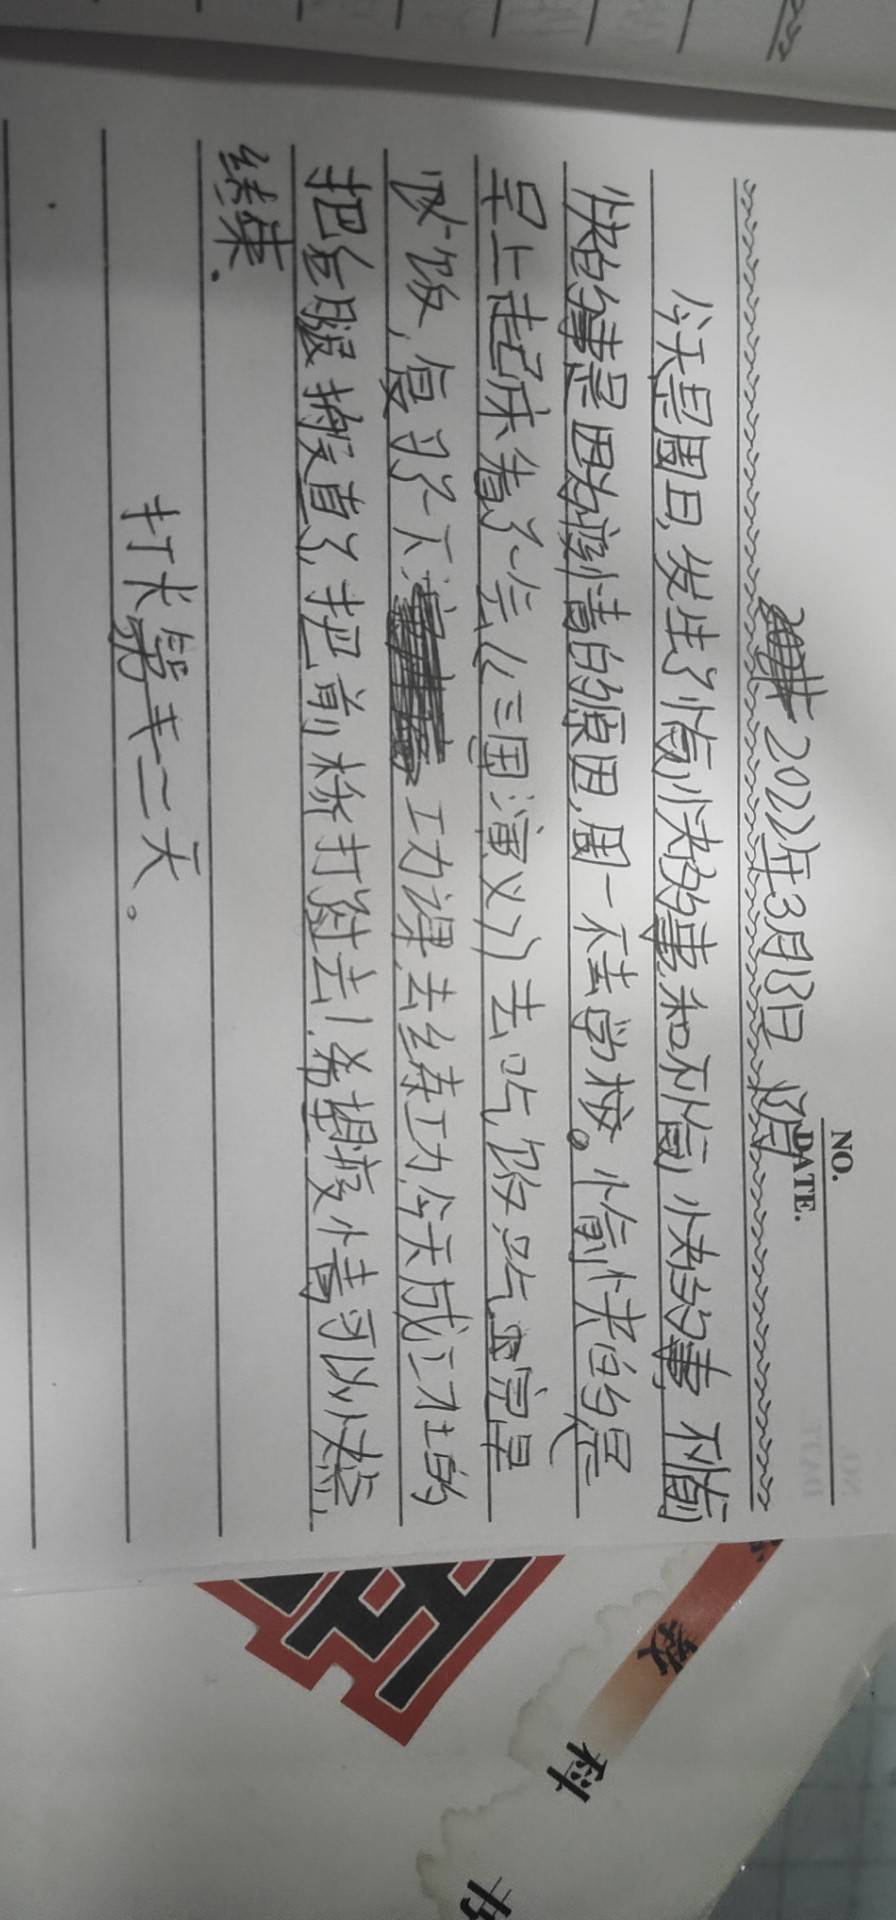 NO.
DATE.
2022年3月13日 阴
今天是周日,发生了愉快的事,和不愉快的事,不愉
快的事是因为疫情的原因,周一不去学校。愉快的是
早上起床看了会《三国演义》去吃饭,吃完早
饭,复习了下 功课,去练功,今天成立在的
把 服 直了,把前桥打 过去!希望疫情可以快点
结束.
打卡第十二天。
教
科
书